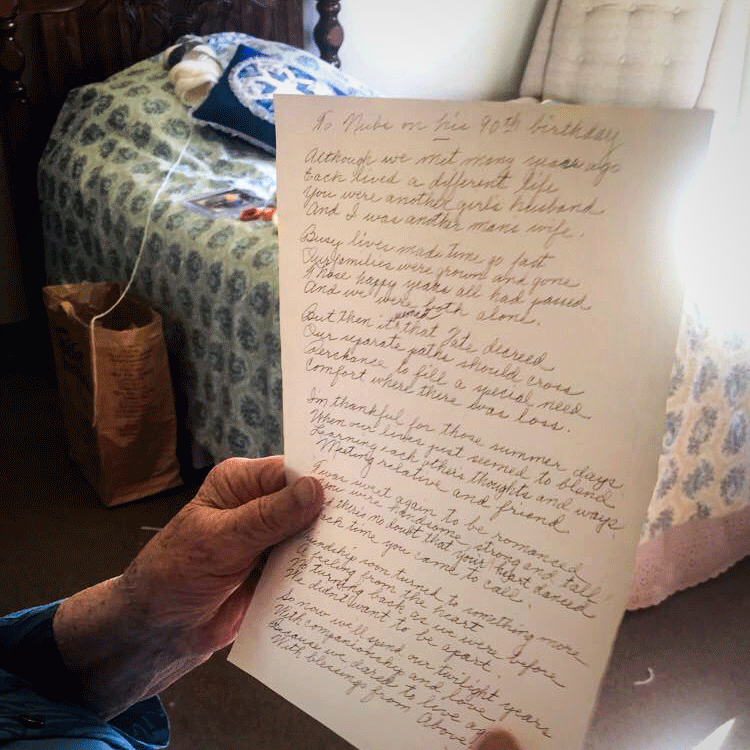 To Nubs on his 90th birthday
Although we met many years ago
Each lived a different life
You were another girl's husband
And I was another man's wife.
Busy lives made time go fast
Our families were grown and gone
Those happy years all had passed
And we were both alone.
But then it seemed that Fate decreed
Our separate paths should cross
Perchance to fill a special need
Comfort where there was loss.
I'm thankful for those summer days
When our lives just seemed to blend
Learning each other's thoughts and ways
Meeting relative and friend
It was sweet again to be romanced
You were handsome, strong and tall!
there's no doubt that your heart danced
Each time you came to call.
Friendship soon turned to something more
A feeling from the heart
No turning back as we were before
We didn't want to be apart.
So now we'll spend our twilight years
With companionship and love
Because we dared to live
With blessings from Above!